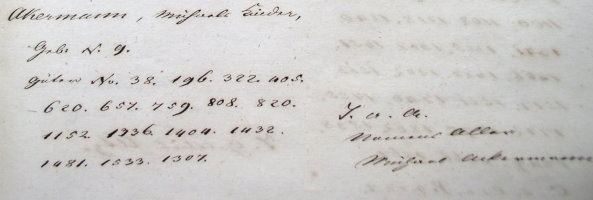 Akermann, Michaels Kinder,
Gebr. N. 9.
Güter No. 38. 196. 322. 405.
620. 657. 759. 808. 820.
1152. 1336. 1404. 1432.
1481. 1533. 1307.
T. a. A.
Namens Aller
Michael Akermann